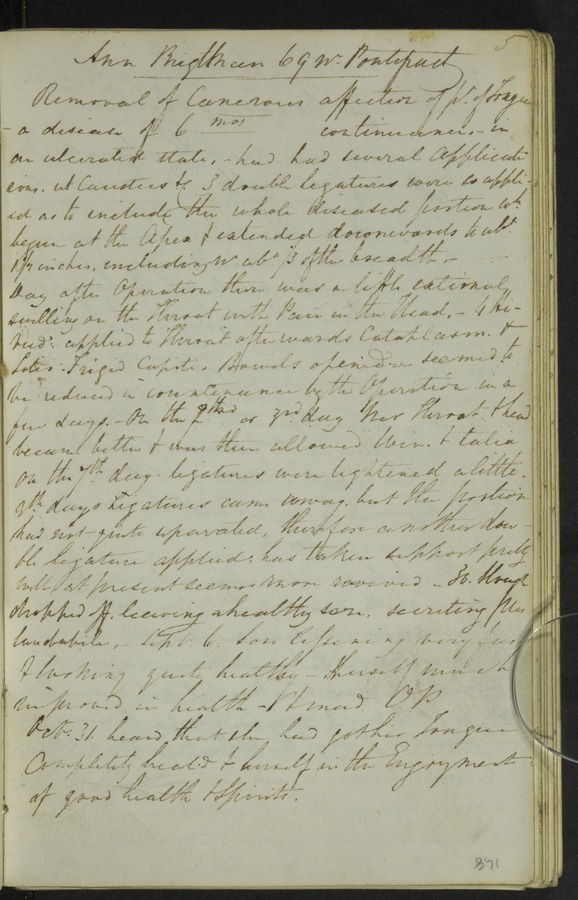 5
Ann 69 Pontefract
Removal of Cancerous affection of pt. of Tongue
- a disease of 6 mos continuance, - in
an ulcerated state, - had had several Applicati
ons. of Caustics &c 3 double Ligatures were so appli-
ed as to include the whole diseased portion wh.
began at the Apex & extended downwards to abt.
inches, including abt 1/3 of the breadth. -
Day after Operation there was a little external
swelling on the Throat with Pain in the Head, - 4 Hi-
rud: applied to Throat afterwards Cataplasm. &
Lotio Frigid Capiti. Bowels opened seemed to
be reduced in countenance by the Operation in a
few days. - On the 2nd or 3rd day her Throat & head
became better & was then allowed Wine &
On the 7th day ligatures were tightened a little.
9th day Ligatures came away but the portion
had not quite separated, therefore another dou-
ble ligature applied; has taken support pretty
well, at present seems more revived - 30. Slough
dropped off, leaving a healthy sore, secreting Pus
laudabile, - Sept. 6. Sore lessening very fast
& looking quite healthy - herself much
improved in health - made O.P.
Oct. 31. heard that she had got her Tongue
Completely heal'd & herself in the Enjoyment
of good health & Spirits.
871